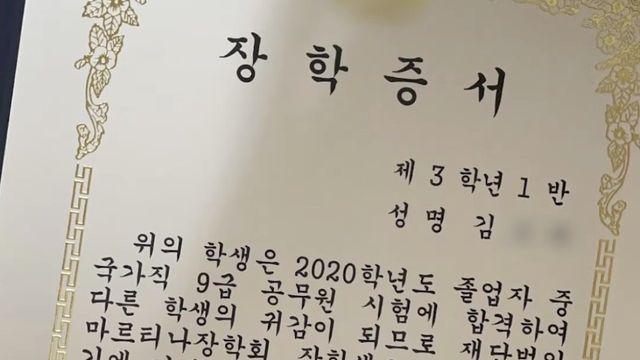 장학증서
제 3 학년 1 반
성 명 김
위의 학생은 2020학년도 졸업자 중
국가직 9급 공무원 시험에 합격하여
다른 학생의 귀감이 되므로 재단법인
마르티나장학회